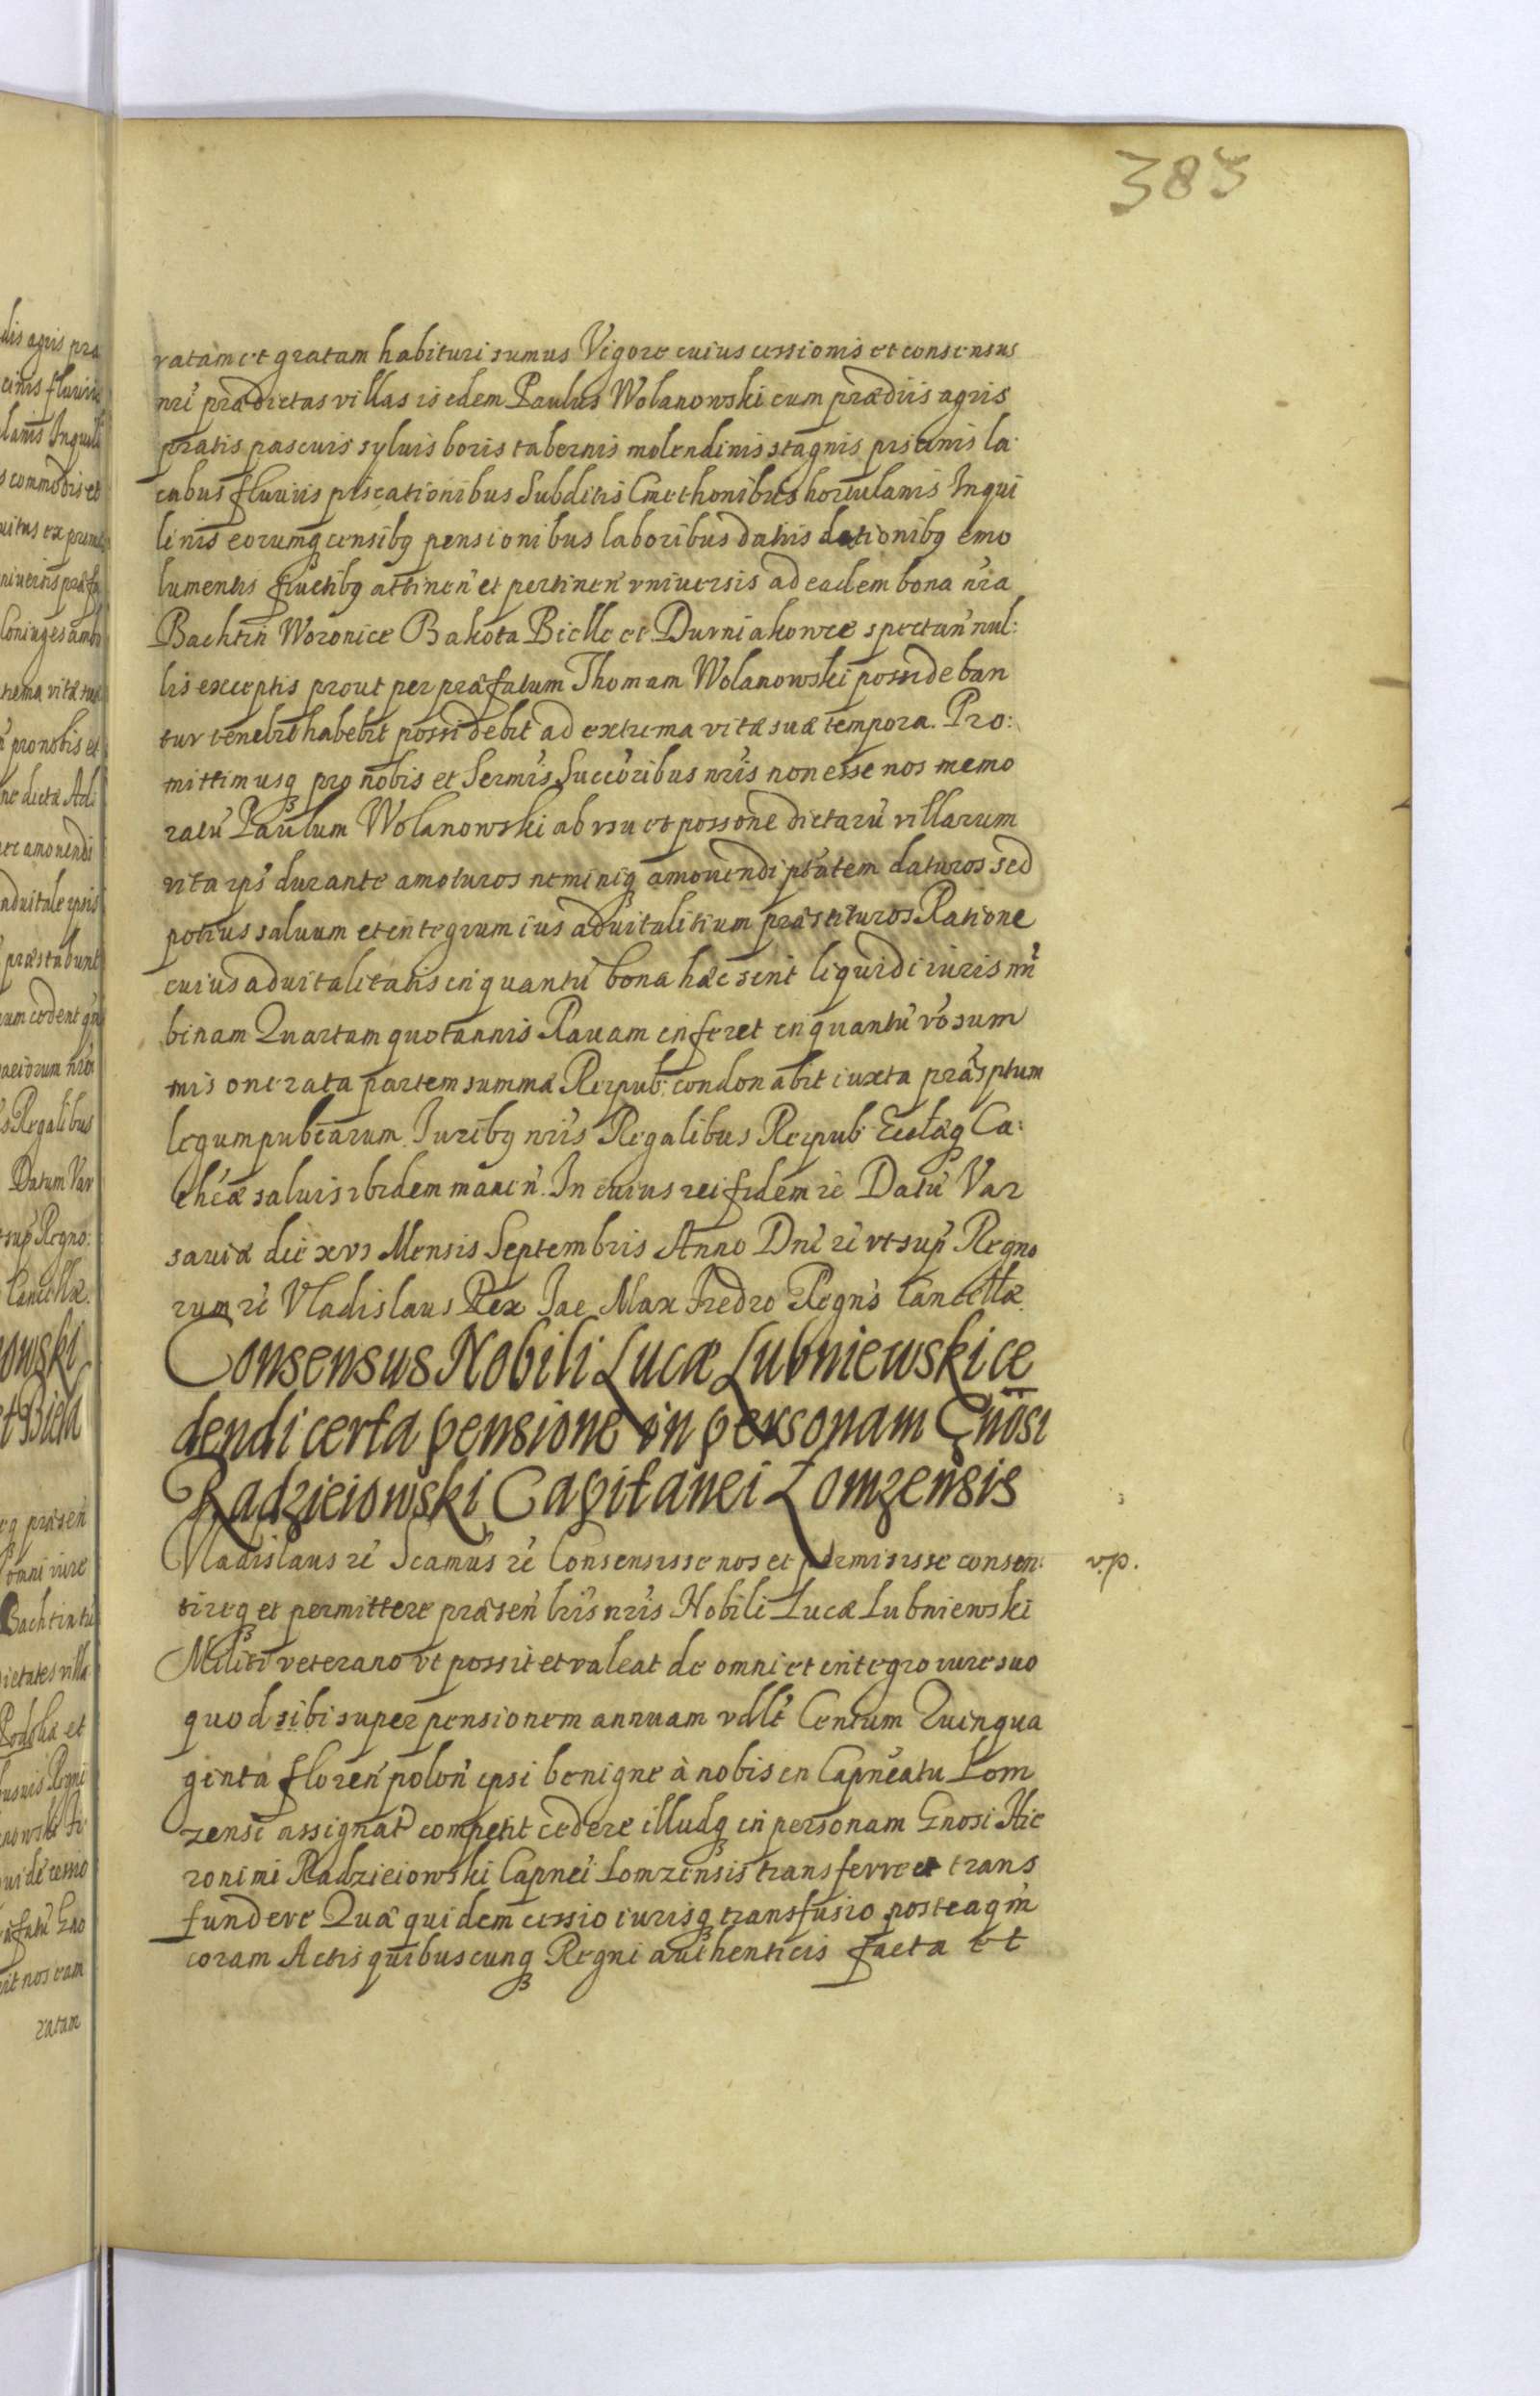 383
ratam et gratam habituri sumus Vigore cuius cessionis et consensus
nri prædictas villas is edem Paulus Wolanowski cum prædiis agris
pratis pascuis syluis boris tabernis molendinis stagnis piscinis la:
cubus fluuiis piscationibus Subditis Cmethonibus hortulanis Inqui
linis eorumq censibq pensionibus laboribus datiis dationibq emo
lumentis fructibq attinen et pertinen vniuersis ad eadem bona nra
Bachtin Woronice Bakota Bielle et Durniakowce spectan nul:
lis exceptis prout per præfatum Thomam Wolanowski possideban
tur tenebit habebit possidebit ad extrema vitæ suæ tempora. Pro:
mittimusq pro nobis et Sermis Succoribus nris non esse nos memo
ratu Paulum Wolanowski ab vsu et possone dictaru villarum
vita ips durante amoturos neminiq amouendi ptatem daturos sed
potius saluum et integrum ius aduitalitium præstituros Ratione
cuius aduitalitatis in quantu bona hæc sint liquidi iuris nri
binam Quartam quotannis Rauam inferet in quantu vo sum
mis onerata partem summæ Reipub: condonabit iuxta præsptum
legum publcarum. Juribq nris Regalibus Reipub Ecclæq Ca:
thcæ saluis ibidem manen. In cuius rei fidem rc Datu Var
sauiæ die xvi Mensis Septembris Anno Dni rc vt sup Regno
rum rc Vladislaus Rex Jac Max Fredro Regns Cancellæ.
Consensus Nobili Lucæ Lubniewski ce
dendi certa pensione in personam Gnosi
Radzieiowski Capitanei Lomzensis
Vladislaus rc Scamus rc Consensisse nos et permisisse consen:
v.p.
tireq et permittere præsen lris nris Nobili Lucæ Lubniewski
Militi veterano vt possit et valeat de omni et integro iure suo
quod sibi super pensionem annuam vdlt Centum Quinqua
ginta floren polon ipsi benigne à nobis in Capneatu Lom
zensi assignat competit cedere illudq in personam Gnosi Hie
ronimi Radzieiowski Capnei Lomzensis transferre et trans
fundere Quæ quidem cessio iurisq transfusio posteaqm
coram Actis quibuscunq Regni authenticis facta et